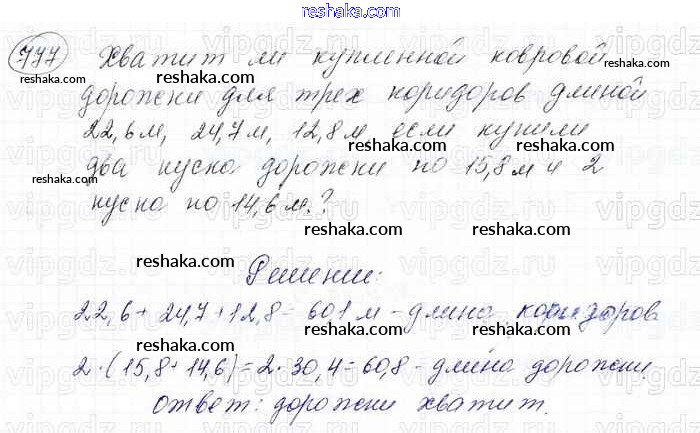 reshaka.com
777 Хватит ли купленной ковровой
reshaka.com reshaka.com reshaka.com
дорожки для трех коридоров длиной
22,6м, 24,7м, 12,8м если купили
reshaka.com
два куска дорожки по 15,8м и 2
reshaka.com
куска по 14,6м.?
reshaka.com
reshaka.com
Решение:
22,6 + 24,7 + 12,8 = 601 м - длина коридоров
reshaka.com reshaka.com
2·(15,8+14,6)=2·30,4=60,8 - длина дорожки.
reshaka.com
ответ: дорожки хватит.
reshaka.com
vipgdz.ru